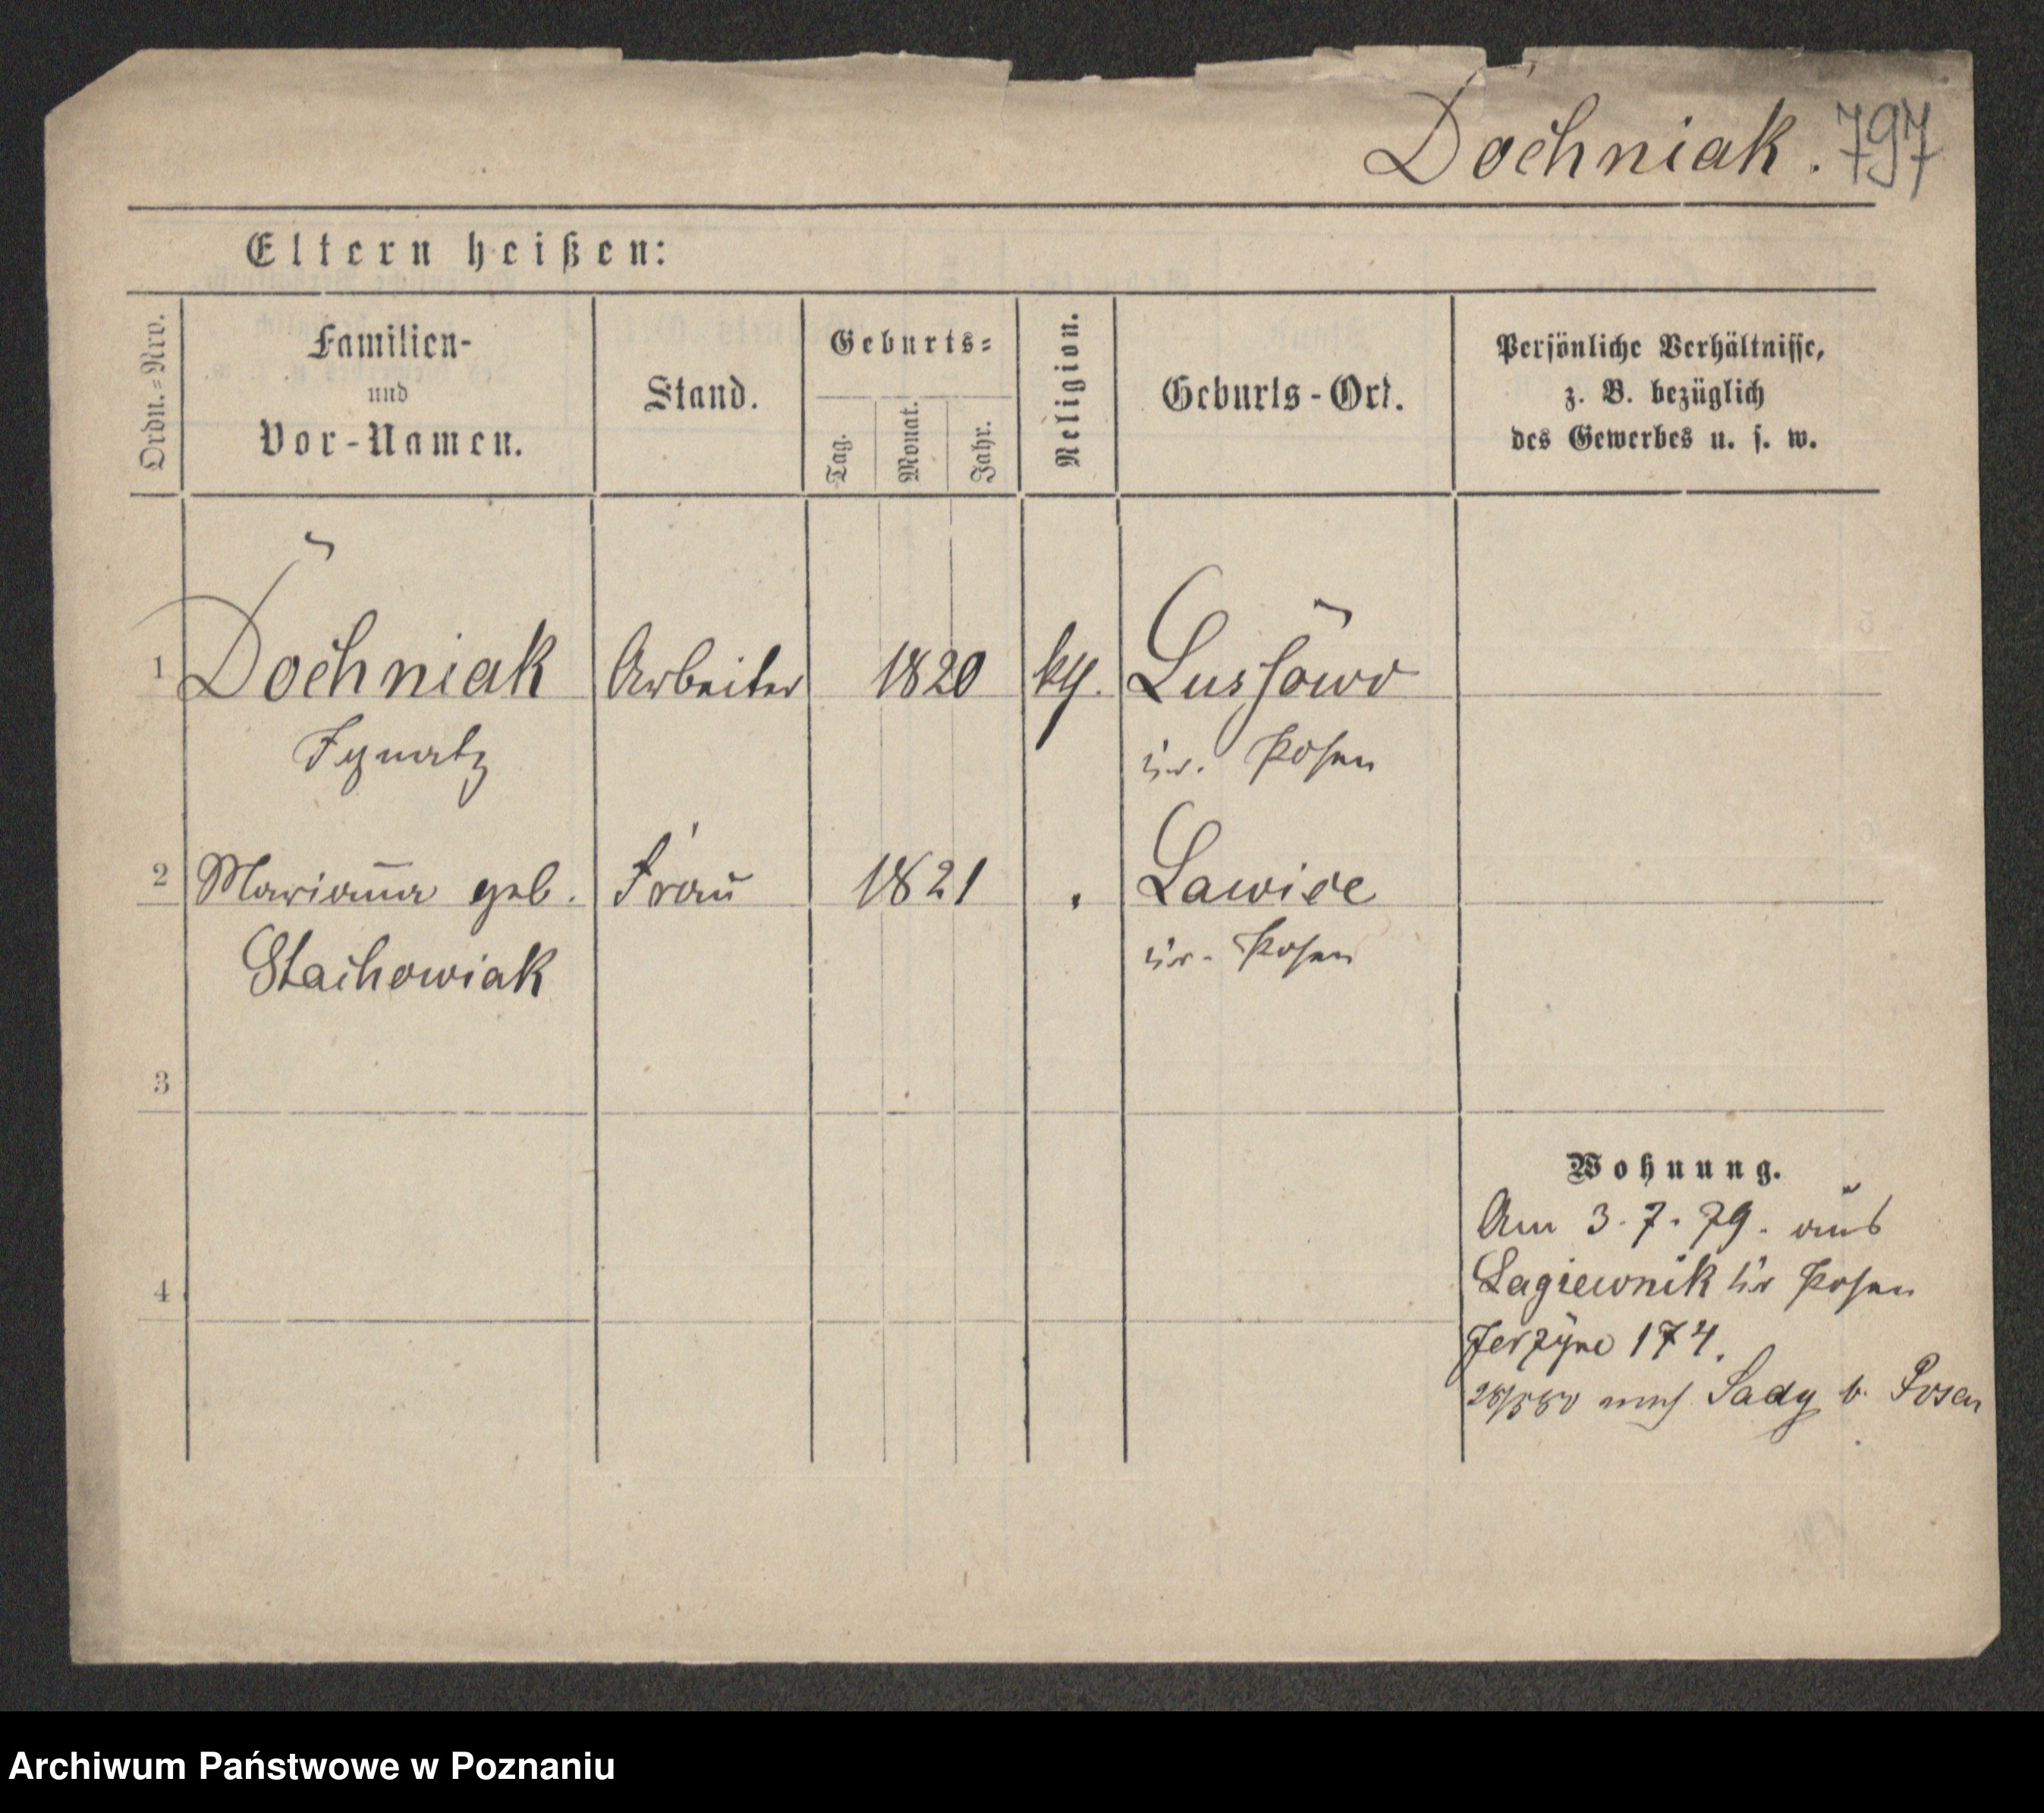 Dochniak. 797
Eltern heißen:
Ordn.=Nro.
Familien-
und
Vor-Namen.
Stand.
Geburts=
Tag.
Monat.
Jahr.
Religion.
Geburts-Ort.
Persönliche Verhältnisse,
z. B. bezüglich
des Gewerbes u. s. w.
1 Dochniak Arbeiter 1820 Lussowo
Ignatz Posen
2 Marianna geb. Frau 1821 Lawice
Stachowiak Posen
3
4
Wohnung.
Am 3. 7. 79. aus
Lagiewnik Posen
Jerzyce 174.
nach Sady b. Posen
Archiwum Państwowe w Poznaniu